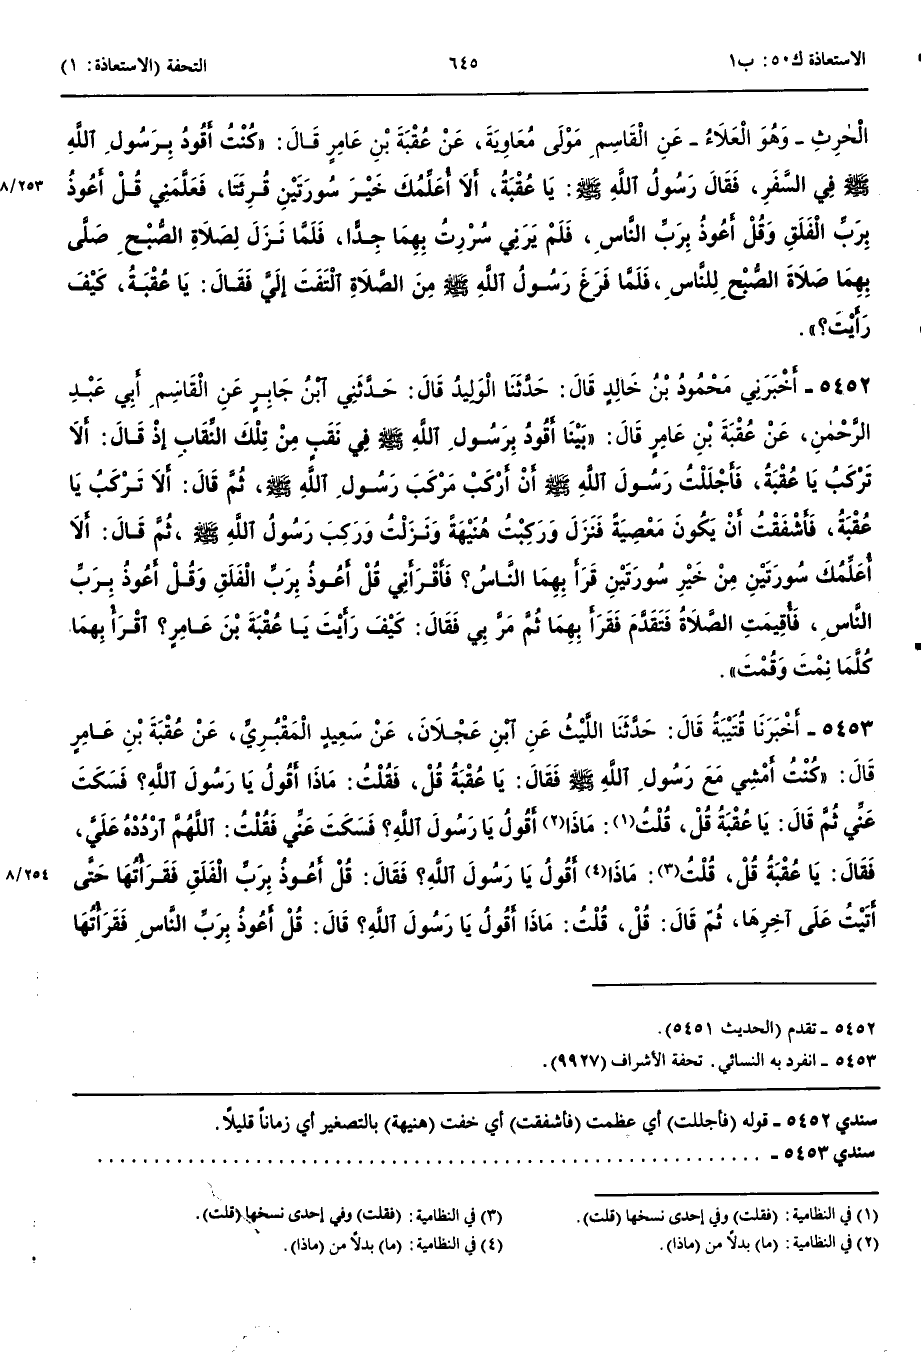 الاستعاذة ك٥٠: ب١ ٦٤٥ التحفة (الاستعاذة: ١)
الْحٰرِثِ ـ وَهُوَ الْعَلَاءُ ـ عَنِ الْقَاسِمِ مَوْلَى مُعَاوِيَةَ، عَنْ عُقْبَةَ بْنِ عَامِرٍ قَالَ: «كُنْتُ أَقُودُ بِرَسُولِ ٱللَّهِ
ﷺ فِي السَّفَرِ، فَقَالَ رَسُولُ ٱللَّهِ ﷺ: يَا عُقْبَةُ، أَلَا أُعَلِّمُكَ خَيْرَ سُورَتَيْنِ قُرِئَتَا، فَعَلَّمَنِي قُلْ أَعُوذُ ٨/٢٥٣
بِرَبِّ الْفَلَقِ وَقُلْ أَعُوذُ بِرَبِّ النَّاسِ، فَلَمْ يَرَنِي سُرِرْتُ بِهِمَا جِدًّا، فَلَمَّا نَزَلَ لِصَلَاةِ الصُّبْحِ صَلَّى
بِهِمَا صَلَاةَ الصُّبْحِ لِلنَّاسِ، فَلَمَّا فَرَغَ رَسُولُ ٱللَّهِ ﷺ مِنَ الصَّلَاةِ ٱلْتَفَتَ إِلَيَّ فَقَالَ: يَا عُقْبَةُ، كَيْفَ
رَأَيْتَ؟».
٥٤٥٢ ـ أَخْبَرَنِي مَحْمُودُ بْنُ خَالِدٍ قَالَ: حَدَّثَنَا الْوَلِيدُ قَالَ: حَدَّثَنِي ٱبْنُ جَابِرٍ عَنِ الْقَاسِمِ أَبِي عَبْدِ
الرَّحْمٰنِ، عَنْ عُقْبَةَ بْنِ عَامِرٍ قَالَ: «بَيْنَا أَقُودُ بِرَسُولِ ٱللَّهِ ﷺ فِي نَقَبٍ مِنْ تِلْكَ النِّقَابِ إِذْ قَالَ: أَلَا
تَرْكَبُ يَا عُقْبَةُ، فَأَجْلَلْتُ رَسُولَ ٱللَّهِ ﷺ أَنْ أَرْكَبَ مَرْكَبَ رَسُولِ ٱللَّهِ ﷺ، ثُمَّ قَالَ: أَلَا تَرْكَبُ يَا
عُقْبَةُ، فَأَشْفَقْتُ أَنْ يَكُونَ مَعْصِيَةً فَنَزَلَ وَرَكِبْتُ هُنَيْهَةً وَنَزَلْتُ وَرَكِبَ رَسُولُ ٱللَّهِ ﷺ، ثُمَّ قَالَ: أَلَا
أُعَلِّمُكَ سُورَتَيْنِ مِنْ خَيْرِ سُورَتَيْنِ قَرَأَ بِهِمَا النَّاسُ؟ فَأَقْرَأَنِي قُلْ أَعُوذُ بِرَبِّ الْفَلَقِ وَقُلْ أَعُوذُ بِرَبِّ
النَّاسِ، فَأُقِيمَتِ الصَّلَاةُ فَتَقَدَّمَ فَقَرَأَ بِهِمَا ثُمَّ مَرَّ بِي فَقَالَ: كَيْفَ رَأَيْتَ يَا عُقْبَةَ بْنَ عَامِرٍ؟ ٱقْرَأْ بِهِمَا
كُلَّمَا نِمْتَ وَقُمْتَ».
٥٤٥٣ ـ أَخْبَرَنَا قُتَيْبَةُ قَالَ: حَدَّثَنَا اللَّيْثُ عَنِ ٱبْنِ عَجْلَانَ، عَنْ سَعِيدٍ الْمَقْبُرِيِّ، عَنْ عُقْبَةَ بْنِ عَامِرٍ
قَالَ: «كُنْتُ أَمْشِي مَعَ رَسُولِ ٱللَّهِ ﷺ فَقَالَ: يَا عُقْبَةُ قُلْ، فَقُلْتُ: مَاذَا أَقُولُ يَا رَسُولَ ٱللَّهِ؟ فَسَكَتَ
عَنِّي ثُمَّ قَالَ: يَا عُقْبَةُ قُلْ، قُلْتُ(١): مَاذَا(٢) أَقُولُ يَا رَسُولَ ٱللَّهِ؟ فَسَكَتَ عَنِّي فَقُلْتُ: ٱللَّهُمَّ ٱرْدُدْهُ عَلَيَّ،
فَقَالَ: يَا عُقْبَةُ قُلْ، قُلْتُ(٣): مَاذَا(٤) أَقُولُ يَا رَسُولَ ٱللَّهِ؟ فَقَالَ: قُلْ أَعُوذُ بِرَبِّ الْفَلَقِ فَقَرَأْتُهَا حَتَّى ٨/٢٥٤
أَتَيْتُ عَلَى آخِرِهَا، ثُمَّ قَالَ: قُلْ، قُلْتُ: مَاذَا أَقُولُ يَا رَسُولَ ٱللَّهِ؟ قَالَ: قُلْ أَعُوذُ بِرَبِّ النَّاسِ فَقَرَأْتُهَا
٥٤٥٢ ـ تقدم (الحديث ٥٤٥١).
٥٤٥٣ ـ انفرد به النسائي. تحفة الأشراف (٩٩٢٧).
سندي ٥٤٥٢ ـ قوله (فأجللت) أي عظمت (فأشفقت) أي خفت (هنيهة) بالتصغير أي زماناً قليلاً.
سندي ٥٤٥٣ ـ ........................................................
(١) في النظامية: (فقلت) وفي إحدى نسخها (قلت). (٣) في النظامية: (فقلت) وفي إحدى نسخها (قلت).
(٢) في النظامية: (ما) بدلاً من (ماذا). (٤) في النظامية: (ما) بدلاً من (ماذا).